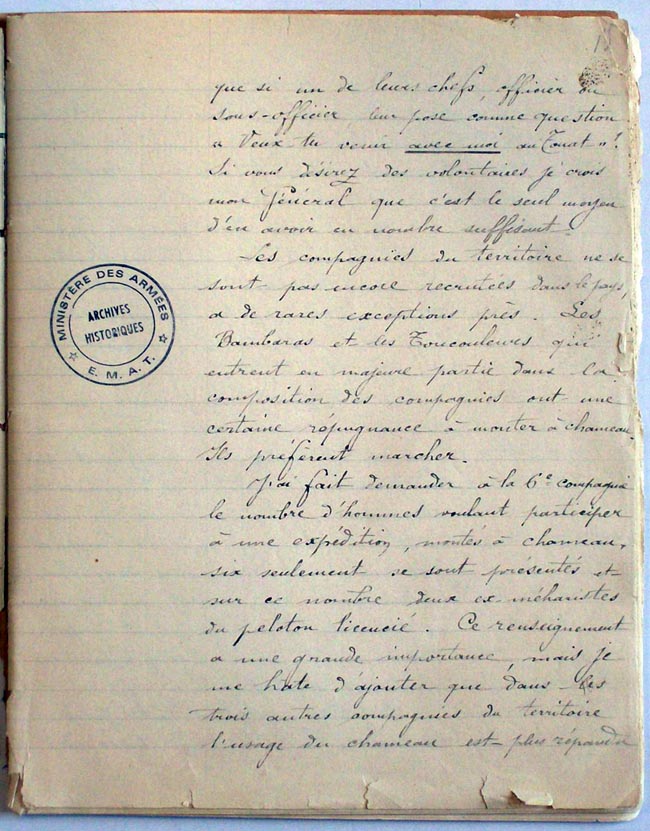 que si un de leurs chefs, officier ou
sous-officier, leur pose comme question
« Veux-tu venir avec moi au Touat » ?
Si vous désirez des volontaires je crois
mon Général que c'est le seul moyen
d'en avoir en nombre suffisant.
Les compagnies du territoire ne se
sont pas encore recrutées dans le pays,
a de rares exceptions près. Les
Bambaras et les Toucouleurs qui
entrent en majeure partie dans la
composition des compagnies ont une
certaine répugnance à monter à chameau.
Ils préfèrent marcher.
J'ai fait demander à la 6e compagnie
le nombre d'hommes voulant participer
à une expédition, montés à chameau,
six seulement se sont présentés et
sur ce nombre deux ex-méharistes
du peloton licencié. Ce renseignement
a une grande importance, mais je
me hâte d'ajouter que dans les
trois autres compagnies du territoire
l'usage du chameau est plus répandu
MINISTÈRE DES ARMÉES
ARCHIVES
HISTORIQUES
E. M. A. T.